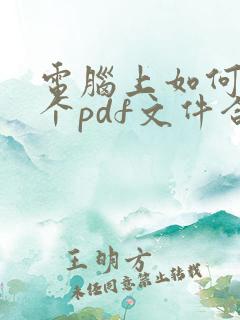 電腦上如何
个pdf文件合
王明方
未经同意禁止转载